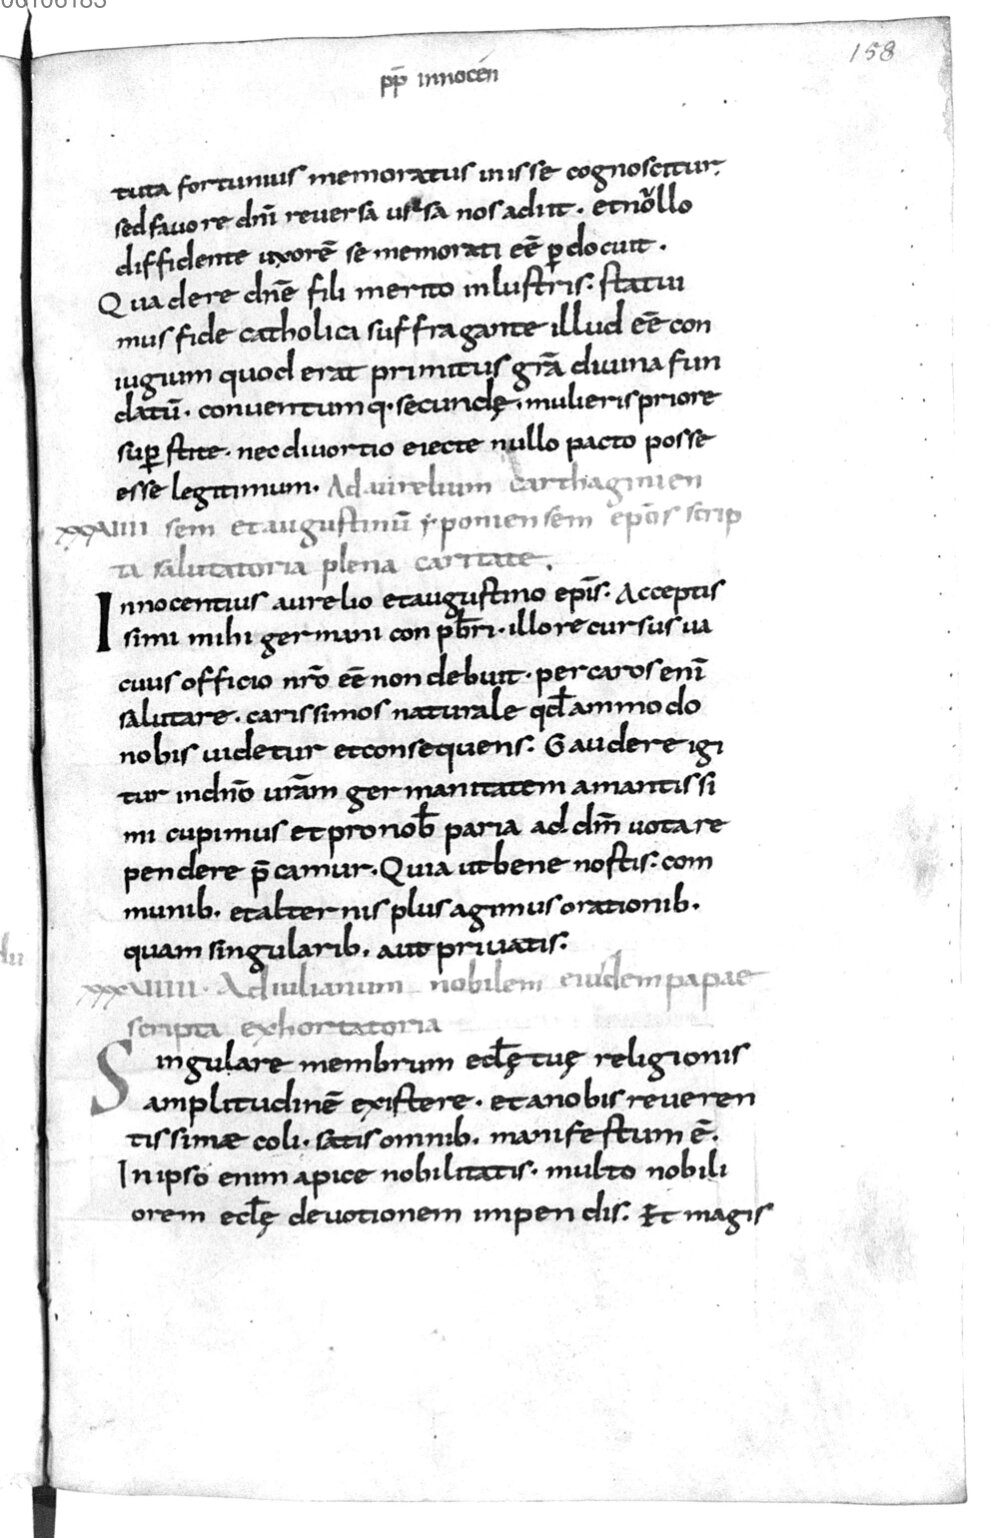 158
pp̄ innocen̄
tuta fortunius memoratus inisse cognoscitur.
sed favore dn̄i reversa ursa nos adiit. et nullo
diffidente uxorē se memorati eē ꝑdocuit.
Qua de re dn̄e fili merito inlustris: statui
mus fide catholica suffragante illud eē con
iugium quod erat primitus gr̄a divina fun
datū. conventumq. secundę mulieris priore
suꝑstite. nec divortio eiecte nullo pacto posse
esse legitimum. Ad aurelium carthaginien
sem et augustinū yponiensem ep̄os scrip
ta salutatoria plena caritate.
Innocentius aurelio et augustino epīs. Acceptis
simi mihi germani conpb̄ri. illo recursus va
cuus officio nr̄o eē non debuit. per caros enī
salutare. carissimos naturale qd̄ammodo
nobis videtur et consequens: Gaudere igi
tur in dn̄o vr̄am germanitatem amantissi
mi cupimus et pro nob̄ paria ad dm̄ vota re
pendere p̄camur. Quia ut bene nostis: com
munib. et alternis plus agimus orationib.
quam singularib. aut privatis:
Ad iulianum nobilem eiusdem papae
scripta exhortatoria
Singulare membrum ecl̄ę tuę religionis
amplitudinē existere. et a nobis reveren
tissimæ coli. satis omnib. manifestum ē.
In ipso enim apice nobilitatis. multo nobili
orem ecl̄ę devotionem impendis: Et magis